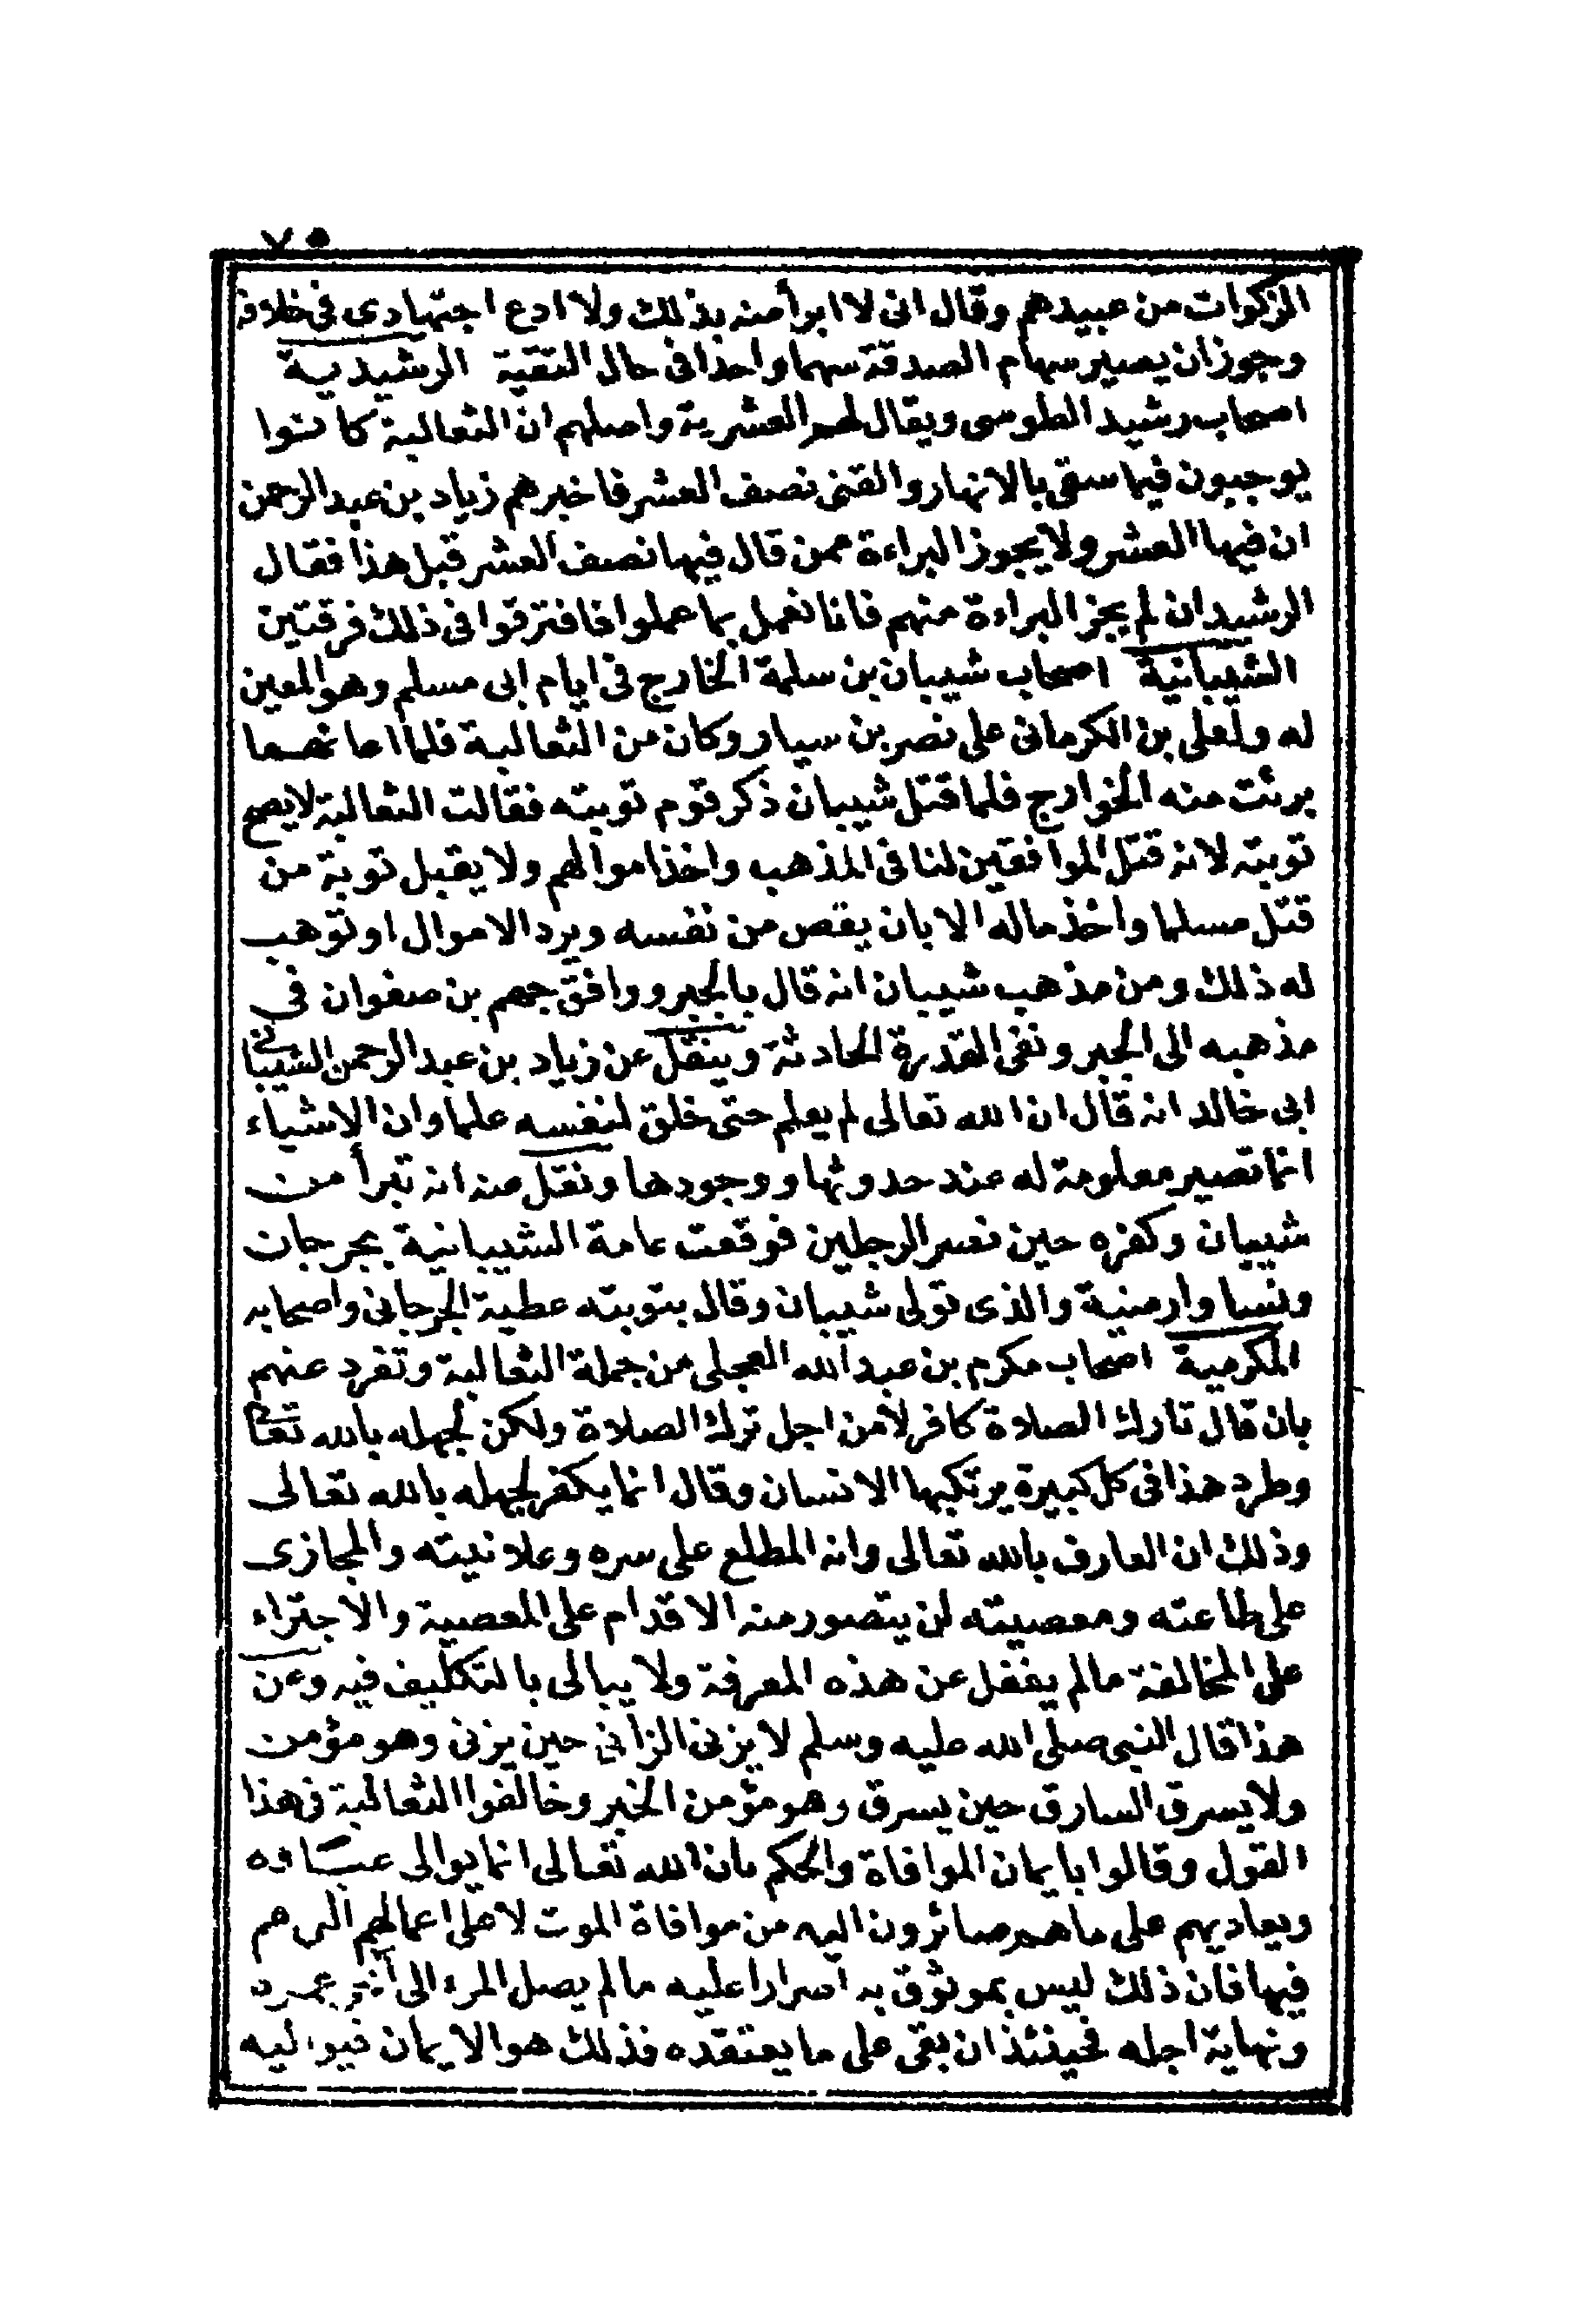 ٧٥
الزكوات من عبيدهم وقال انى لا ابرأ منه بذلك ولا ادع اجتهادى فى خلافه
وجوز ان يصير سهام الصدقة سهما واحدا فى حال التقية الرشيدية
اصحاب رشيد الطوسى ويقال لهم العشرية واصلهم ان الثعالبة كانوا
يوجبون فيما سقى بالانهار والقنى نصف العشر فاخبرهم زياد بن عبد الرحمن
ان فيها العشر ولا يجوز البراءة ممن قال فيها نصف العشر قبل هذا فقال
الرشيد ان لم يجز البراءة منهم فانا نعمل بما عملوا فافترقوا فى ذلك فرقتين
الشيبانية اصحاب شيبان بن سلمة الخارج فى ايام ابى مسلم وهو المعين
له ولعلى بن الكرمانى على نصر بن سيار وكان من الثعالبة فلما اعانهما
برئت منه الخوارج فلما قتل شيبان ذكر قوم توبته فقالت الثعالبة لا يصح
توبته لانه قتل الموافقين لنا فى المذهب واخذ اموالهم ولا يقبل توبة من
قتل مسلما واخذ ماله الا بان يقص من نفسه ويرد الاموال او توهب
له ذلك ومن مذهب شيبان انه قال بالجبر ووافق جهم بن صفوان فى
مذهبه الى الجبر ونفى القدرة الحادثة وينقل عن زياد بن عبد الرحمن الشيبانى
ابى خالد انه قال ان الله تعالى لم يعلم حتى خلق لنفسه علما وان الاشياء
انما تصير معلومة له عند حدوثها ووجودها ونقل عنه انه تبرأ من
شيبان وكفره حين نصر الرجلين فوقعت عامة الشيبانية بجرجان
ونسا وارمنية والذى تولى شيبان وقال بتوبته عطية الجرجانى واصحابه
المكرمية اصحاب مكرم بن عبد الله العجلى من جملة الثعالبة وتفرد عنهم
بان قال تارك الصلاة كافر لا من اجل ترك الصلاة ولكن لجهله بالله تعالى
وطرد هذا فى كل كبيرة يرتكبها الانسان وقال انما يكفر لجهله بالله تعالى
وذلك ان العارف بالله تعالى وانه المطلع على سره وعلانيته والمجازى
على طاعته ومعصيته لن يتصور منه الاقدام على المعصية والاجتراء
على المخالفة مالم يغفل عن هذه المعرفة ولا يبالى بالتكليف فيه وعن
هذا قال النبى صلى الله عليه وسلم لا يزنى الزانى حين يزنى وهو مؤمن
ولا يسرق السارق حين يسرق وهو مؤمن الخبر وخالفوا الثعالبة فى هذا
القول وقالوا بايمان الموافاة والحكم بان الله تعالى انما يوالى عباده
ويعاديهم على ما هم صائرون اليه من موافاة الموت لا على اعمالهم التى هم
فيها فان ذلك ليس بموثوق به اصرارا عليه مالم يصل المرء الى آخر عمره
ونهاية اجله فحينئذ ان بقى على ما يعتقده فذلك هو الايمان فيواليه